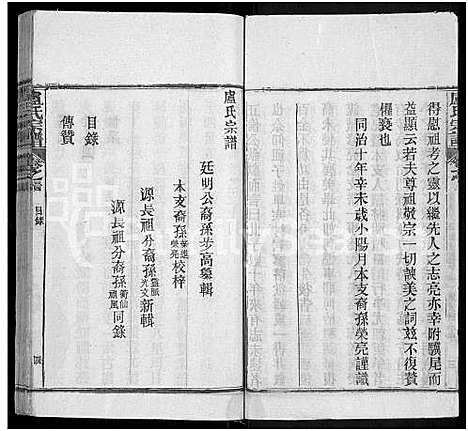 得慰祖考之靈以繼先人之志亮亦幸附驥尾而
益顯云若夫尊祖敬宗一切諛美之詞玆不復贊
櫂褻也
同治十年辛未歲小陽月本支裔孫榮亮謹識
盧氏宗譜
廷明公裔孫步高纂輯
本支裔孫榮亮校梓
源長祖分裔孫光文新輯
源長祖分裔孫同錄
目錄
傳贊
盧氏宗譜
卷之首
目錄